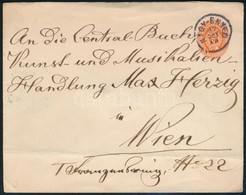 An die Central Buch,
Kunst und Musikalien
Handlung Max Herzig
in
Wien
NAGY-ENYED